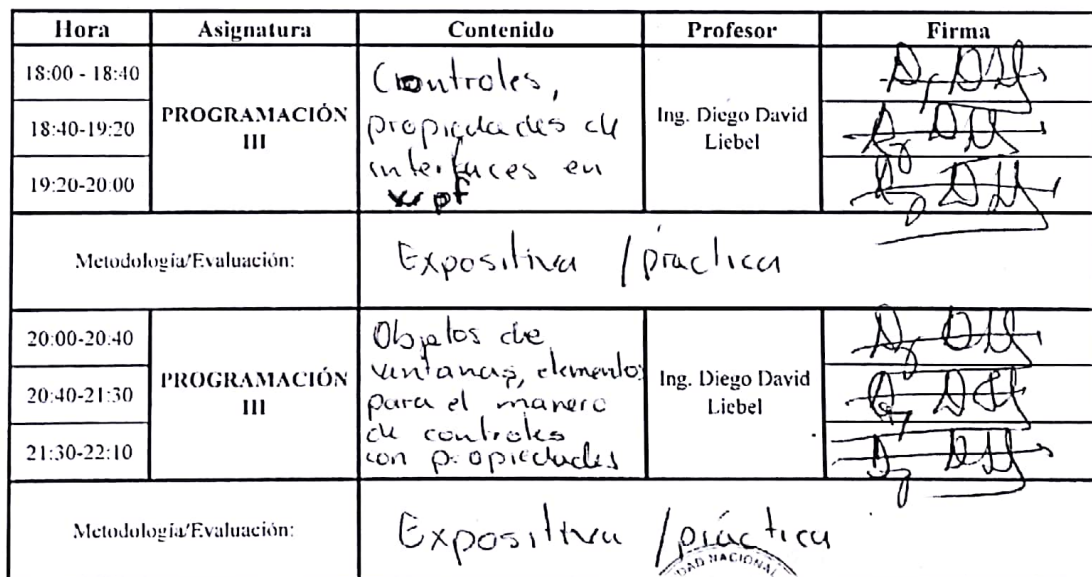 Hora Asignatura Contenido Profesor Firma
18:00 - 18:40
18:40-19:20
19:20-20:00
PROGRAMACIÓN
III
Controles,
propiedades de
interfaces en
wpf
Ing. Diego David
Liebel
Metodología/Evaluación:
Expositiva / practica
20:00-20:40
20:40-21:30
21:30-22:10
PROGRAMACIÓN
III
Objetos de
ventanas, elementos
para el manero
de controles
con propiedades
Ing. Diego David
Liebel
Metodología/Evaluación:
Expositiva / práctica
NACIONAL